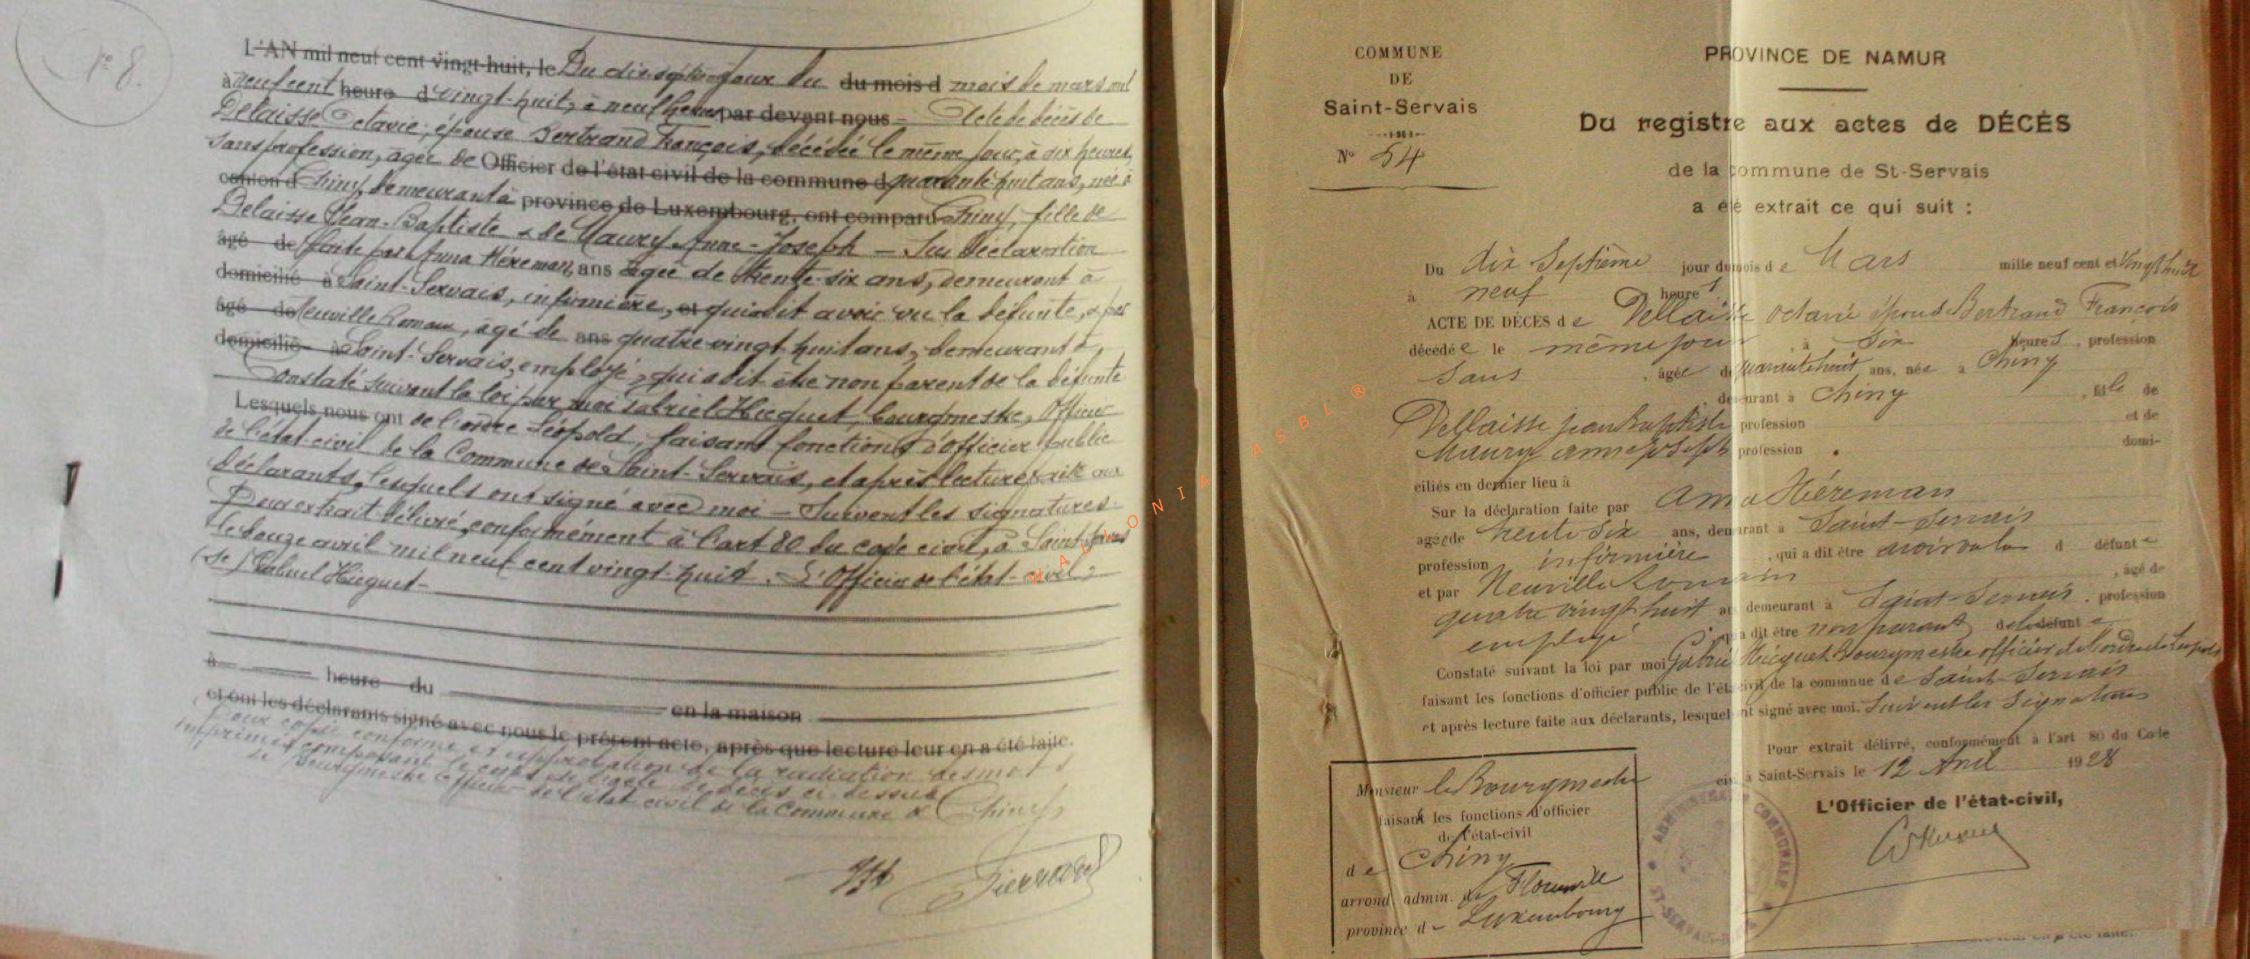 N° 8.
L'AN mil neuf cent vingt-huit, le Du dix septième jour du du mois d mois de mars mil
à neuf cent heure d vingt-huit, à neuf heures par devant nous – Acte de décès de
Delaisse Octavie, épouse Bertrand François, décédée le même jour, à dix heures,
sans profession, âgée de Officier de l'état civil de la commune d quarante huit ans, née à
canton d Chiny, demeurant à province de Luxembourg, ont comparu Chiny, fille de
Delaisse Jean-Baptiste & de Maury Anne-Joseph – Sur Déclaration
âgé de faite par Anna Héreman, ans âgée de trente-six ans, demeurant à
domicilié à Saint-Servais, infirmière, et qui a dit avoir vu la défunte, & par
âgé de Neuville Romain, âgé de ans quatre vingt huit ans, demeurant à
domicilié à Saint-Servais, employé, qui a dit être non parent de la défunte
Constaté suivant la loi par moi Gabriel Hicguet, bourgmestre, Officier
Lesquels nous ont de l'ordre Léopold, faisant fonctions d'officier public
de l'état-civil de la Commune de Saint-Servais, et après lecture faite aux
déclarants, lesquels ont signé avec moi – Suivent les signatures.
Pour extrait délivré, conformément à l'art 80 du code civil, à Saint-Servais
le douze avril mil neuf cent vingt-huit. L'Officier de l'état-civil,
(sé) Gabriel Hicguet –
à heure du
en la maison
et ont les déclarants signé avec nous le présent acte, après que lecture leur en a été faite.
Pour copie conforme et approbation de la radiation des mots
imprimés composant le corps de l'acte de décès ci-dessus
Le Bourgmestre officier de l'état civil de la Commune de Chiny
WALLONIA ASBL ®
COMMUNE
DE
Saint-Servais
N° 54
PROVINCE DE NAMUR
Du registre aux actes de DÉCÈS
de la commune de St-Servais
a été extrait ce qui suit :
Du dix Septième jour du mois de Mars mille neuf cent et vingt huit
à neuf heures
ACTE DE DÉCÈS de Dellaisse Octavie épouse Bertrand François
décédée le même jour, à dix heures, profession
Sans, âgée de quarante huit ans, née à Chiny
demeurant à Chiny, fille de
Dellaisse jean Baptiste profession et de
Maury anne joseph profession domi-
ciliés en dernier lieu à
Sur la déclaration faite par Anna Héreman
agée de trente six ans, demeurant à Saint-Servais
profession infirmière, qui a dit être avoir vu la d défunte
et par Neuville Romain, âgé de
quatre vingt huit ans demeurant à Saint-Servais. profession
employé qui a dit être non parent de la défunte
Constaté suivant la loi par moi Gabriel Hicguet Bourgmestre officier de l'ordre de Léopold
faisant les fonctions d'officier public de l'état civil de la commune de Saint-Servais
et après lecture faite aux déclarants, lesquels ont signé avec moi. Suivent les Signatures
Pour extrait délivré, conformément à l'art 80 du Code
civil à Saint-Servais le 12 Avril 1928
L'Officier de l'état-civil,
Monsieur le Bourgmestre
faisant les fonctions d'officier
de l'état-civil
de Chiny
arrond. admin. de Florenville
province de Luxembourg
ADMINISTRATION COMMUNALE
ST-SERVAIS